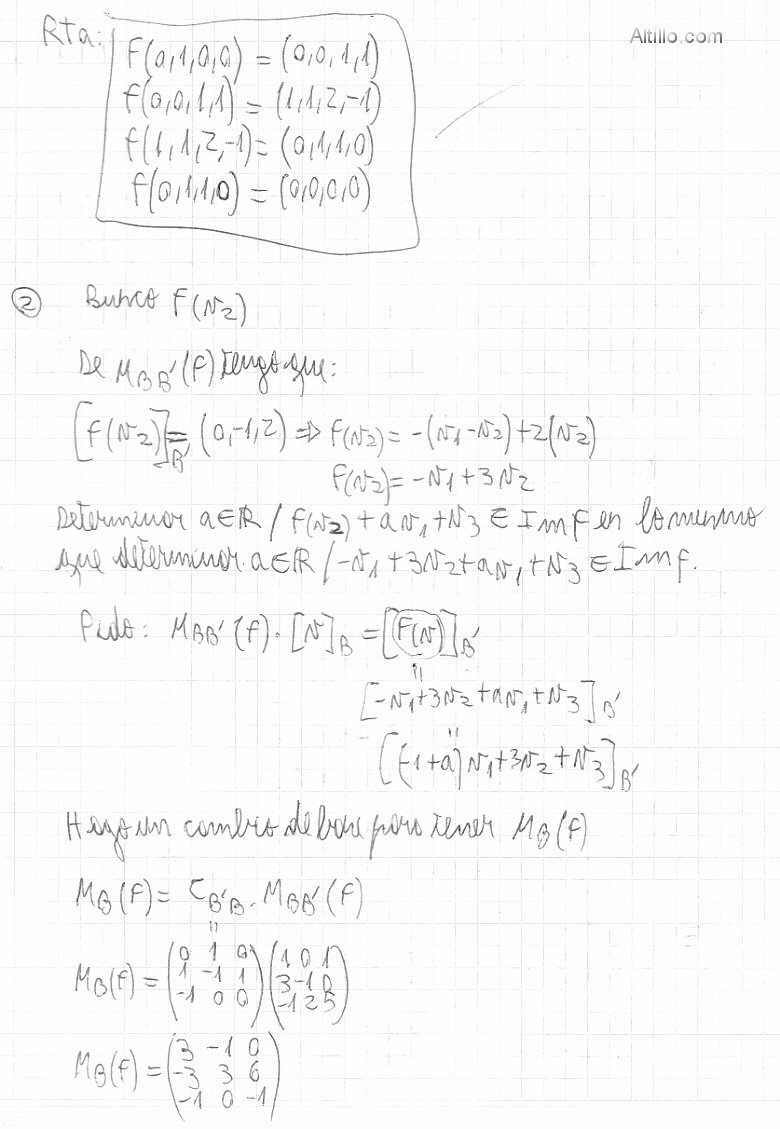 Altillo.com
Rta:
F(0,1,0,0) = (0,0,1,1)
f(0,0,1,1) = (1,1,2,-1)
f(1,1,2,-1) = (0,1,1,0)
f(0,1,1,0) = (0,0,0,0)
② Busco F(v₂)
De M_BB'(f) tengo que:
[f(v₂)]_B' = (0,-1,2) ⇒ f(v₂) = -(v₁-v₂)+2(v₂)
f(v₂) = -v₁+3v₂
Determinar a∈ℝ / f(v₂)+av₁+v₃ ∈ Im f es lo mismo
que determinar a∈ℝ / -v₁+3v₂+av₁+v₃ ∈ Im f.
Pido: M_BB'(f)·[v]_B = [F(v)]_B'
=
[-v₁+3v₂+av₁+v₃]_B'
=
[(-1+a)v₁+3v₂+v₃]_B'
Hago un cambio de base para tener M_B(f)
M_B(f) = C_B'B · M_BB'(f)
=
M_B(f) = (0 1 0; 1 -1 1; -1 0 0) (1 0 1; 3 -1 0; -1 2 5)
M_B(f) = (3 -1 0; -3 3 6; -1 0 -1)